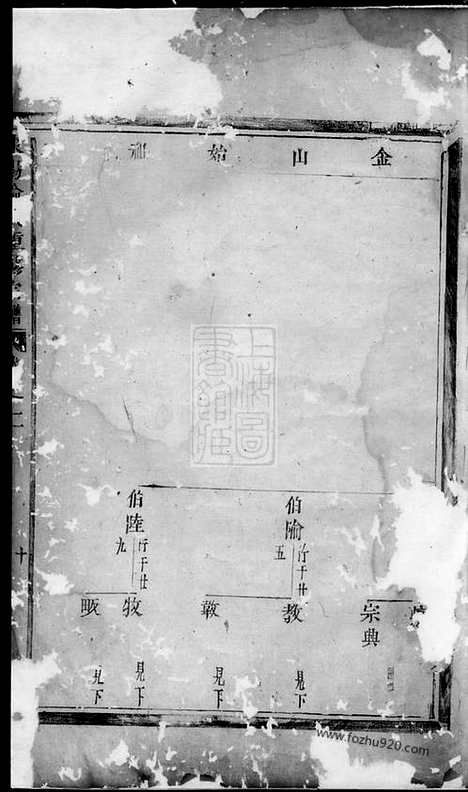 金山始祖
宗典
伯隃
行千廿
五
教
見下
敢
見下
伯陸
行千廿
九
牧
見下
畋
見下
重修宗譜
十
上海圖書館藏
www.fozhu920.com